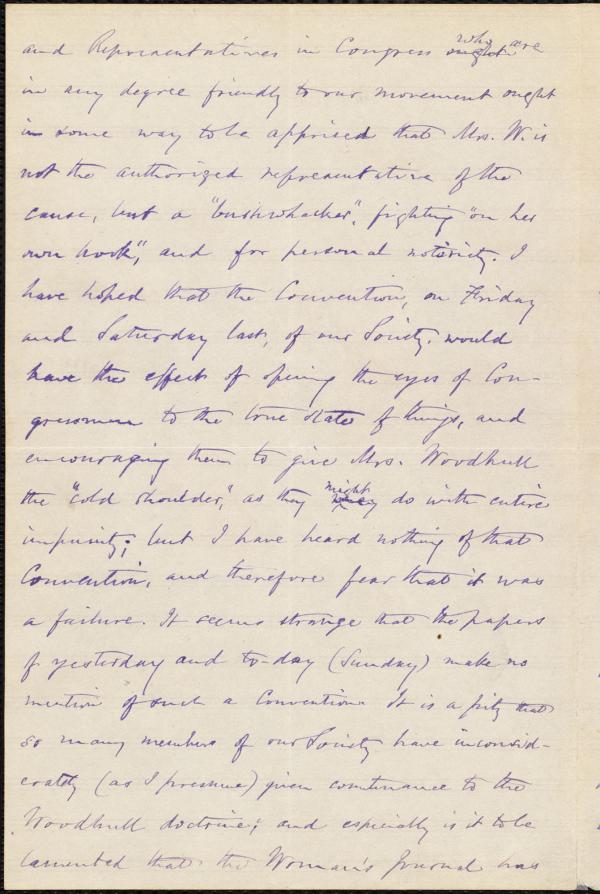 and Representatives in Congress who are
in any degree friendly to our movement ought
in some way to be apprised that Mrs. W. is
not the authorized representative of the
cause, but a "bushwhacker", fighting "on her
own hook", and for personal notoriety. I
have hoped that the Convention, on Friday
and Saturday last, of our Society, would
have the effect of opening the eyes of Con-
gressmen to the true state of things, and
encouraging them to give Mrs. Woodhull
the "cold shoulder," as they might do with entire
impunity; but I have heard nothing of that
Convention, and therefore fear that it was
a failure. It seems strange that the papers
of yesterday and to-day (Sunday) make no
mention of such a Convention. It is a pity that
so many members of our Society have inconsid-
erately (as I presume) given countenance to the
Woodhull doctrine; and especially is it to be
lamented that the Woman's Journal has